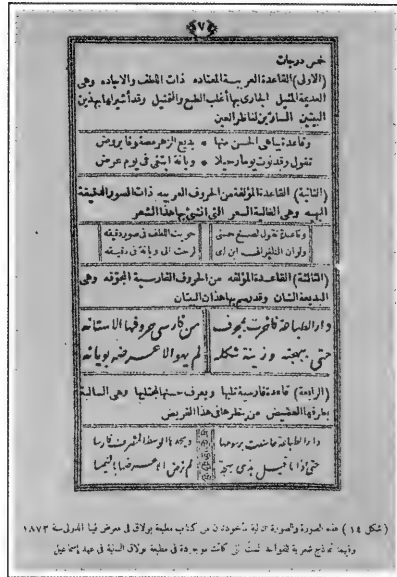 ﴿٧﴾
خمس درجات
(الاولى) القاعدة العربيسة المعتاده ذات اللطف والاجاده وهى
العديمة المثيل الجارى بها أغلب الطبع والتمثيل وقد أشير لها بهذين
البيتين السارّين لناظر العين
وقاعدة يباهى الحسن منها * بديع الزهر مصفوفا بروض
تقول وقد نوت يوما رحيلا * وبانة ابتنى فى يوم عرض
(الثانية) القاعدة المؤلفة من الحروف العربيه ذات الصور الدقيقة
البهيه وهى الغالية السعر التى انشئ بها هذا الشعر
وقاعدة تقول لصبغ حسنى
حويت اللطف فى صور دقيقه
ولو ان التلغراف ابن لى
لرحت الى وبانة فى دقيقه
(الثالثة) القاعدة المؤلفه من الحروف الفارسية المجوّفه وهى
البديعة الشان وقد رسم بها هذان البيتان
دار الطباعة فاخرت بمجوف
من فارسى حروفها الاستانه
حتى بهجته وزينة شكله
لم يهو الا عرضه بويانه
(الرابعة) قاعدة فارسية تليها ويعرف حسنها مجتليها وهى السالبة
بظرفها الغضيض من ينظر على هذا القريض
دار الطباعة
حتى اذا ما قيل
لم ترض الا عرضها بالنيها
(شكل ١٤) هذه الصورة والصورة التالية مأخوذتان من كتاب مطبعة بولاق فى معرض فينا الدولى سنة ١٨٧٣
وفيهما نماذج شعرية للقواعد الست التى كانت موجودة فى مطبعة بولاق السنية فى عهد إسماعيل